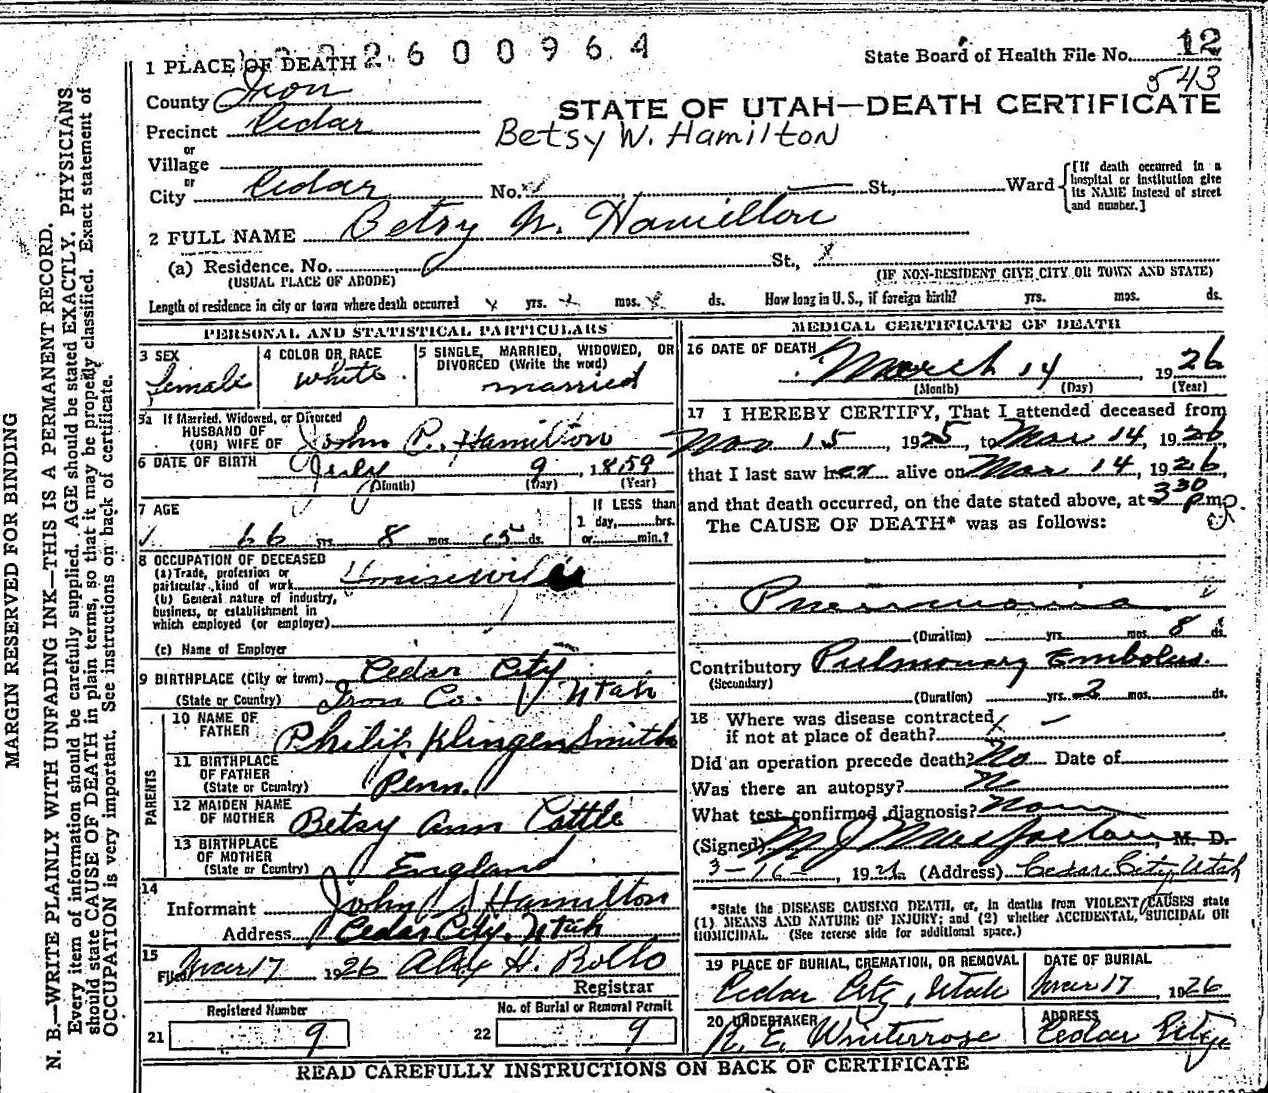 2600964
State Board of Health File No. 12
543
1 PLACE OF DEATH
County Iron
STATE OF UTAH—DEATH CERTIFICATE
Precinct Cedar
Betsy W. Hamilton
or
Village
or
City Cedar No. St., Ward
[If death occurred in a hospital or institution give its NAME instead of street and number.]
2 FULL NAME Betsy W. Hamilton
(a) Residence. No. St.,
(USUAL PLACE OF ABODE) (IF NON-RESIDENT GIVE CITY OR TOWN AND STATE)
Length of residence in city or town where death occurred yrs. mos. ds. How long in U.S., if foreign birth? yrs. mos. ds.
PERSONAL AND STATISTICAL PARTICULARS
3 SEX
female
4 COLOR OR RACE
white
5 SINGLE, MARRIED, WIDOWED, OR
DIVORCED (Write the word)
married
5a If Married, Widowed, or Divorced
HUSBAND OF
(OR) WIFE OF John P. Hamilton
6 DATE OF BIRTH July 9, 1859
(Month) (Day) (Year)
7 AGE
66 yrs. 8 mos. 5 ds.
If LESS than
1 day, hrs.
or min.?
8 OCCUPATION OF DECEASED
(a) Trade, profession or
particular kind of work Housewife
(b) General nature of industry,
business, or establishment in
which employed (or employer)
(c) Name of Employer
9 BIRTHPLACE (City or town) Cedar City
(State or Country) Iron Co. Utah
PARENTS
10 NAME OF
FATHER Philip Klingen Smith
11 BIRTHPLACE
OF FATHER
(State or Country) Penn.
12 MAIDEN NAME
OF MOTHER Betsy Ann Cattle
13 BIRTHPLACE
OF MOTHER
(State or Country) England
14
Informant John Hamilton
Address Cedar City, Utah
15
Filed Mar 17 1926 Alex H. Rollo
Registrar
Registered Number
21 9
No. of Burial or Removal Permit
22 9
MEDICAL CERTIFICATE OF DEATH
16 DATE OF DEATH
March 14, 1926
(Month) (Day) (Year)
17 I HEREBY CERTIFY, That I attended deceased from
Nov 15, 1925, to Mar 14, 1926,
that I last saw her alive on Mar 14, 1926,
and that death occurred, on the date stated above, at 3 30 p m.
The CAUSE OF DEATH* was as follows:
Pneumonia
(Duration) yrs. mos. 8 ds.
Contributory Pulmonary Embolus.
(Secondary)
(Duration) yrs. 2 mos. ds.
18 Where was disease contracted
if not at place of death?
Did an operation precede death? No Date of
Was there an autopsy? No
What test confirmed diagnosis? None
(Signed) M J Macfarlane, M. D.
3-16-, 1926 (Address) Cedar City, Utah
*State the DISEASE CAUSING DEATH, or, in deaths from VIOLENT CAUSES state
(1) MEANS AND NATURE OF INJURY; and (2) whether ACCIDENTAL, SUICIDAL OR
HOMICIDAL. (See reverse side for additional space.)
19 PLACE OF BURIAL, CREMATION, OR REMOVAL
Cedar City, Utah
DATE OF BURIAL
Mar 17, 1926
20 UNDERTAKER
R. E. Winterrose
ADDRESS
Cedar City
READ CAREFULLY INSTRUCTIONS ON BACK OF CERTIFICATE
MARGIN RESERVED FOR BINDING
N. B.—WRITE PLAINLY WITH UNFADING INK—THIS IS A PERMANENT RECORD.
Every item of information should be carefully supplied. AGE should be stated EXACTLY. PHYSICIANS
should state CAUSE OF DEATH in plain terms, so that it may be properly classified. Exact statement of
OCCUPATION is very important. See instructions on back of certificate.